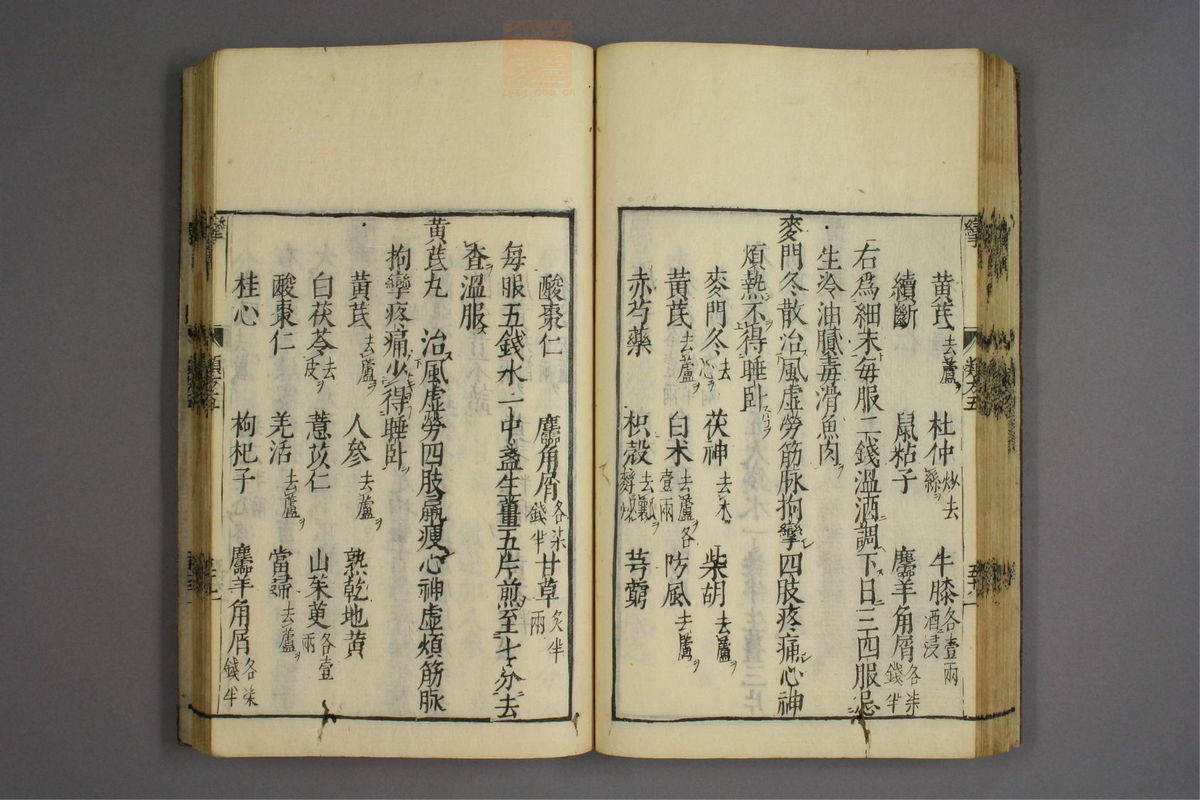 黄芪去蘆 杜仲炒去絲 牛膝各壹兩酒浸
續斷 鼠粘子 麢羊角屑各柒錢半
右爲細末每服二錢溫酒調下日三四服忌
生冷油膩毒滑魚肉
麥門冬散治風虛勞筋脉拘攣四肢疼痛心神
煩熱不得睡卧
麥門冬去心 茯神去木 柴胡去蘆
黄芪去蘆 白术去蘆各壹兩 防風去蘆
赤芍藥 枳殻去瓤麩炒 芎藭
酸棗仁 麢角屑各柒錢半 甘草炙半兩
每服五錢水一中盞生薑五片煎至七分去
查溫服
黄芪丸 治風虛勞四肢羸瘦心神虛煩筋脉
拘攣疼痛少得睡卧
黄芪去蘆 人參去蘆 熟乾地黄
白茯苓去皮 薏苡仁 山茱萸各壹兩
酸棗仁 羌活去蘆 當歸去蘆
桂心 枸杞子 麢羊角屑各柒錢半